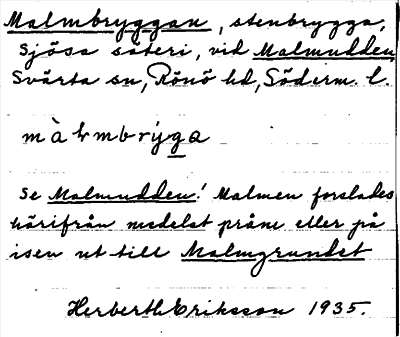 Malmbryggan, stenbrygga,
Sjösa säteri, vid Malmudden
Svärta sn, Rönö hd, Söderm. l.
Se Malmudden! Malmen forslades
härifrån medelst pråm eller på
isen ut till Malmgrundet
Herberth Eriksson 1935.